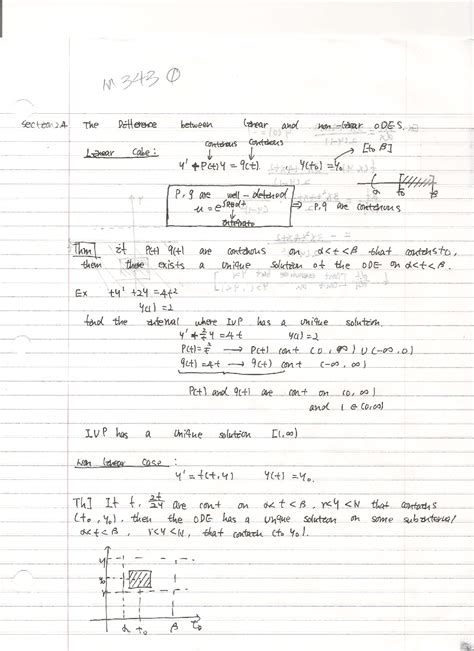 M 343 0
Section 2.4 The Difference between linear and non-linear ODES.
continous continous
Linear Case: y' + P(t) y = q(t). y(t0) = y0 [t0 β]
α t0 β
P, q are well-defined ⇒ P, q are continous
u = e^∫P(t)dt
integrate
Thm] if P(t) q(t) are continous on α<t<β that contains to,
then there exists a unique solution of the ODE on α<t<β.
Ex ty' + 2y = 4t²
y(1) = 2
find the interval where IVP has a unique solution.
y' + 2/t y = 4t y(1) = 2
P(t) = 2/t → P(t) cont (0, ∞) ∪ (-∞, 0)
q(t) = 4t → q(t) cont (-∞, ∞)
P(t) and q(t) are cont on (0, ∞)
and 1 ∈ (0, ∞)
IVP has a unique solution [1, ∞)
Non linear case :
y' = f(t, y) y(t) = y0.
Th] If f, ∂f/∂y are cont on α<t<β, r<y<N that contains
(t0, y0), then the ODE has a unique solution on some subinterval
α<t<β, r<y<N, that contain (t0 y0).
y
y0
r
α t0 β t